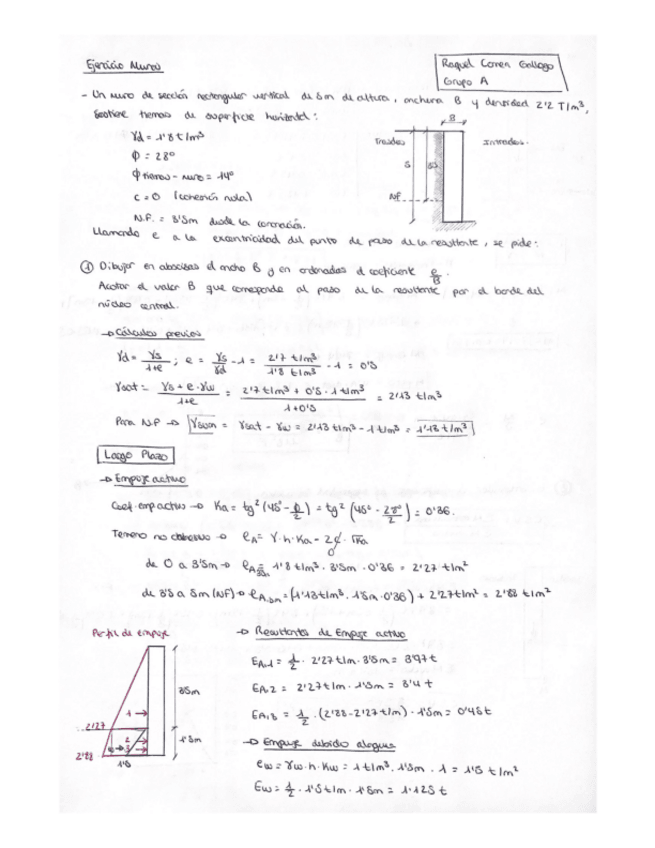 Ejercicio Muros
Raquel Correa Gallego
Grupo A
- Un muro de sección rectangular vertical de 5m de altura, anchura B y densidad 2'2 T/m³,
sostiene tierras de superficie horizontal:
γd = 1'8 t/m³
ϕ = 28°
ϕ tierras - muro = 14°
c = 0 (cohesión nula)
N.F. = 3'5m desde la coronación.
B
Trasdós
Intradós.
5
3'5
NF
Llamando e a la excentricidad del punto de paso de la resultante, se pide:
① Dibujar en abscisas el ancho B y en ordenadas el coeficiente e/B.
Acotar el valor B que corresponde al paso de la resultante por el borde del
núcleo central.
→ Cálculos previos
γd = γs/1+e ; e = γs/γd - 1 = 2'7 t/m³ / 1'8 t/m³ - 1 = 0'5
γsat = γs + e · γw / 1+e = 2'7 t/m³ + 0'5 · 1 t/m³ / 1+0'5 = 2'13 t/m³
Para N.F → γsum = γsat - γw = 2'13 t/m³ - 1 t/m³ = 1'13 t/m³
Largo Plazo
→ Empuje activo
Coef. emp activo → Ka = tg² (45° - ϕ/2) = tg² (45° - 28°/2) = 0'36.
Terreno no cohesivo → eA = γ · h · Ka - 2c · √Ka
0
de 0 a 3'5m → eA 3'5m = 1'8 t/m³ · 3'5m · 0'36 = 2'27 t/m²
de 3'5 a 5m (NF) → eA 5m = (1'13t/m³ · 1'5m · 0'36) + 2'27t/m² = 2'88 t/m²
Perfil de empuje
3'5m
1'5m
2'27
2'88
1'5
1
2
3
w
→ Resultantes de Empuje activo
EA,1 = 1/2 · 2'27 t/m · 3'5m = 3'97 t
EA,2 = 2'27 t/m · 1'5m = 3'4 t
EA,3 = 1/2 · (2'88 - 2'27 t/m) · 1'5m = 0'45 t
→ Empuje debido al agua
ew = γw · h · Kw = 1 t/m³ · 1'5m · 1 = 1'5 t/m²
Ew = 1/2 · 1'5 t/m · 1'5m = 1'125 t